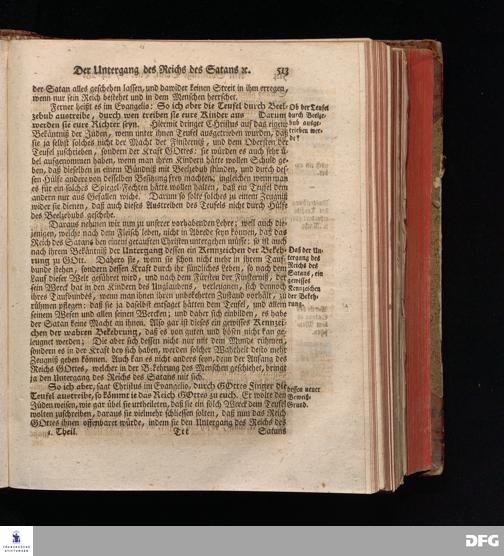 Der Untergang des Reichs des Satans ꝛc. 513
der Satan alles geschehen lassen, und dawider keinen Streit in ihm erregen,
wenn nur sein Reich bestehet und in dem Menschen herrschet.
Ferner heißt es im Evangelio: So ich aber die Teufel durch Beel-
zebub austreibe, durch wen treiben sie eure Kinder aus Darum
werden sie eure Richter seyn. Hiermit dringet Christus auf das eigene
Bekäntniß der Jüden, wenn unter ihnen Teufel ausgetrieben wurden, daß
sie ja selbst solches nicht der Macht der Finsterniß, und dem Obersten der
Teufel zuschrieben, sondern der Kraft GOttes: sie würden es auch sehr ü-
bel aufgenommen haben, wenn man ihren Kindern hätte wollen Schuld ge-
ben, daß dieselben in einem Bündniß mit Beelzebub stünden, und durch des-
sen Hülfe andere von desselben Besitzung frey machten; ingleichen wenn man
es für ein solches Spiegel-Fechten hätte wollen halten, daß ein Teufel dem
andern nur aus Gefallen wiche. Darum so solte solches zu einem Zeugniß
wider sie dienen, daß auch dieses Austreiben des Teufels nicht durch Hülfe
des Beelzebubs geschehe.
Ob der Teufel
durch Beelze-
bub ausge-
trieben wer-
de?
Daraus nehmen wir nun zu unserer vorhabenden Lehre; weil auch die-
jenigen, welche nach dem Fleisch leben, nicht in Abrede seyn können, daß das
Reich des Satans bey einem getauften Christen untergehen müsse: so ist auch
nach ihrem Bekäntniß der Untergang dessen ein Kennzeichen der Bekeh-
rung zu GOtt. Dahero sie, wenn sie schon nicht mehr in ihrem Tauf-
bunde stehen, sondern dessen Kraft durch ihr sündliches Leben, so nach dem
Lauf dieser Welt geführet wird, und nach dem Fürsten der Finsterniß, der
sein Werck hat in den Kindern des Unglaubens, verleugnen, sich dennoch
ihres Taufbundes, wenn man ihnen ihren unbekehrten Zustand vorhält, zu
rühmen pflegen: daß sie ja daselbst entsaget hätten dem Teufel, und allem
seinem Wesen und allen seinen Wercken; und daher sich einbilden, es habe
der Satan keine Macht an ihnen. Also gar ist dieses ein gewisses Kennzei-
chen der wahren Bekehrung, daß es von guten und bösen nicht kan ge-
leugnet werden: Die aber sich dessen nicht nur mit dem Munde rühmen,
sondern es in der Kraft bey sich haben, werden solcher Wahrheit desto mehr
Zeugniß geben können. Auch kan es nicht anders seyn, denn der Anfang des
Reichs GOttes, welcher in der Bekehrung des Menschen geschiehet, bringt
ja den Untergang des Reichs des Satans mit sich.
Daß der Un-
tergang des
Reichs des
Satans, ein
gewisses
Kennzeichen
der Bekeh-
rung.
So ich aber, saat Christus im Evangelio, durch GOttes Finger die
Teufel austreibe, so kömmt je das Reich GOttes zu euch. Er wolte den
Jüden weisen, wie gar übel sie urtheileten, daß sie ein solch Werck dem Teufel
wolten zuschreiben, daraus sie vielmehr schliessen solten, daß nun das Reich
GOttes ihnen offenbaret würde, indem sie den Untergang des Reichs des
dessen neuer
Beweiß-
Grund.
1. Theil. Ttt Satans
FRANCKESCHE STIFTUNGEN
DFG